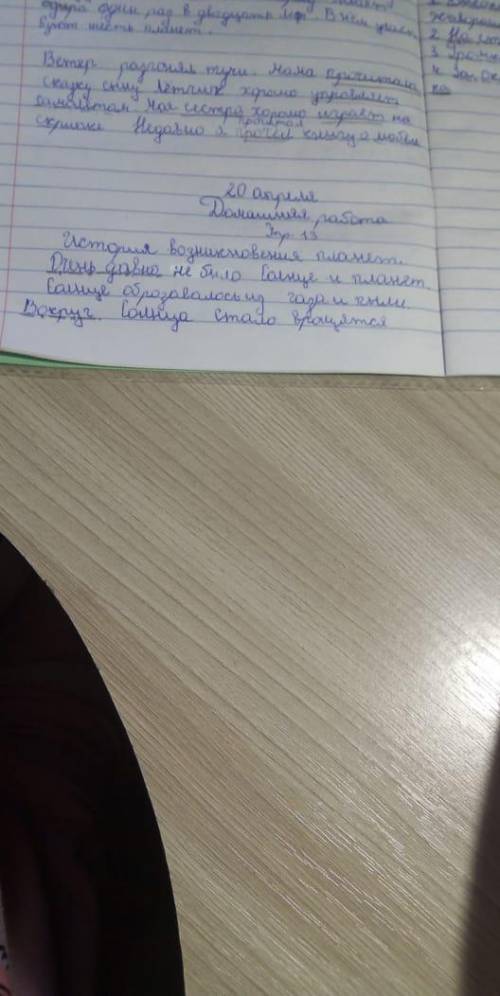 друга один раз в двадцать
будет шесть планет.
Ветер разгонял тучи. Мама прочитала
сказку сыну Летчик хорошо управляет
самолётом Моя сестра хорошо играет на
скрипке Недавно я прочёл книгу о
20 апреля
Домашняя работа
Упр. 13
История возникновения планет.
Очень давно не было Солнце и планет
Солнце образавалось из газа и пыли.
Вокруг Солнца стало вращятся
1.
2. На
3
4.